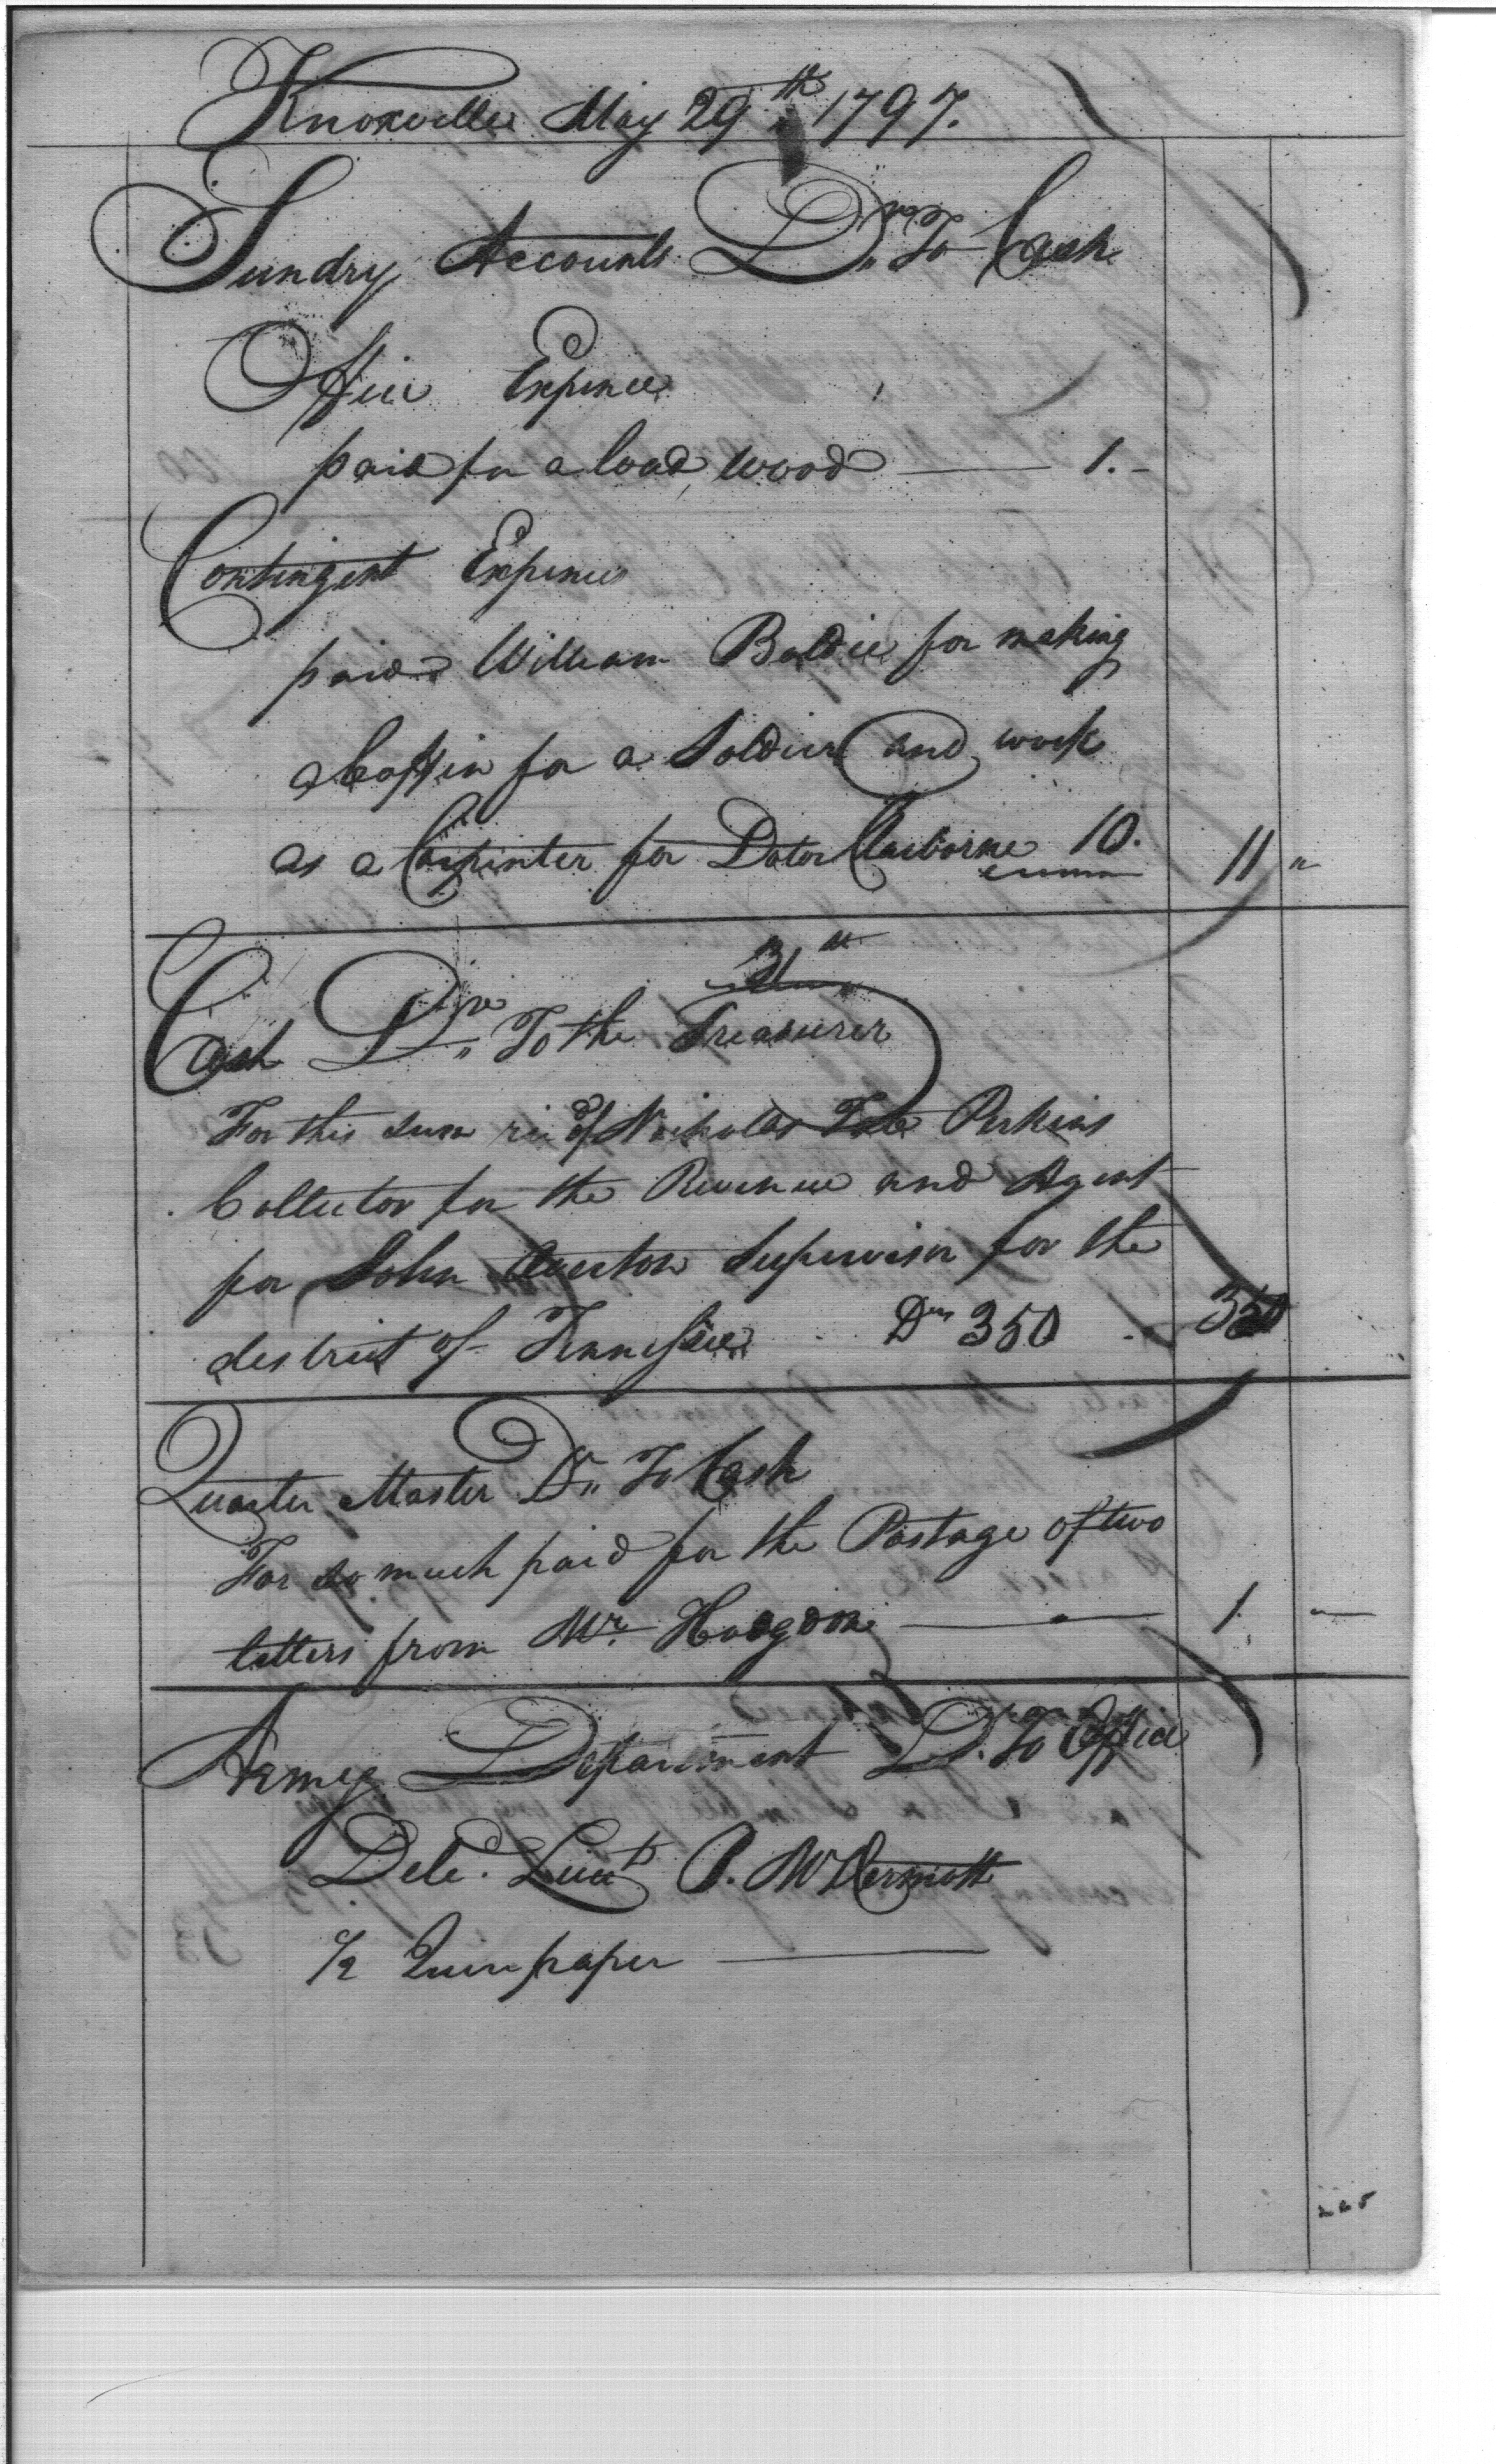 Knoxville May 29th 1797.
Sundry Accounts Drs To Cash
Office Expence
paid for a load wood — 1.-
Contingent Expences
paid William Baldie for making
a Coffin for a Soldier and work
as a Carpinter for Doctor Claiborne 10. 11 "
31st
Cash Dr. To the Treasurer
For this sum recd of Nicholas Tate Perkins
Collector for the Revenue and Agent
for John Overton Supervisor for the
district of Tennessee Drs 350 350
Quarter Master Dr. To Cash
For so much paid for the Postage of two
letters from Mr. Hodgdon — 1. —
Army Department Dr. To Office
Deld. Lieut P. McDermott
1/2 Quire paper —